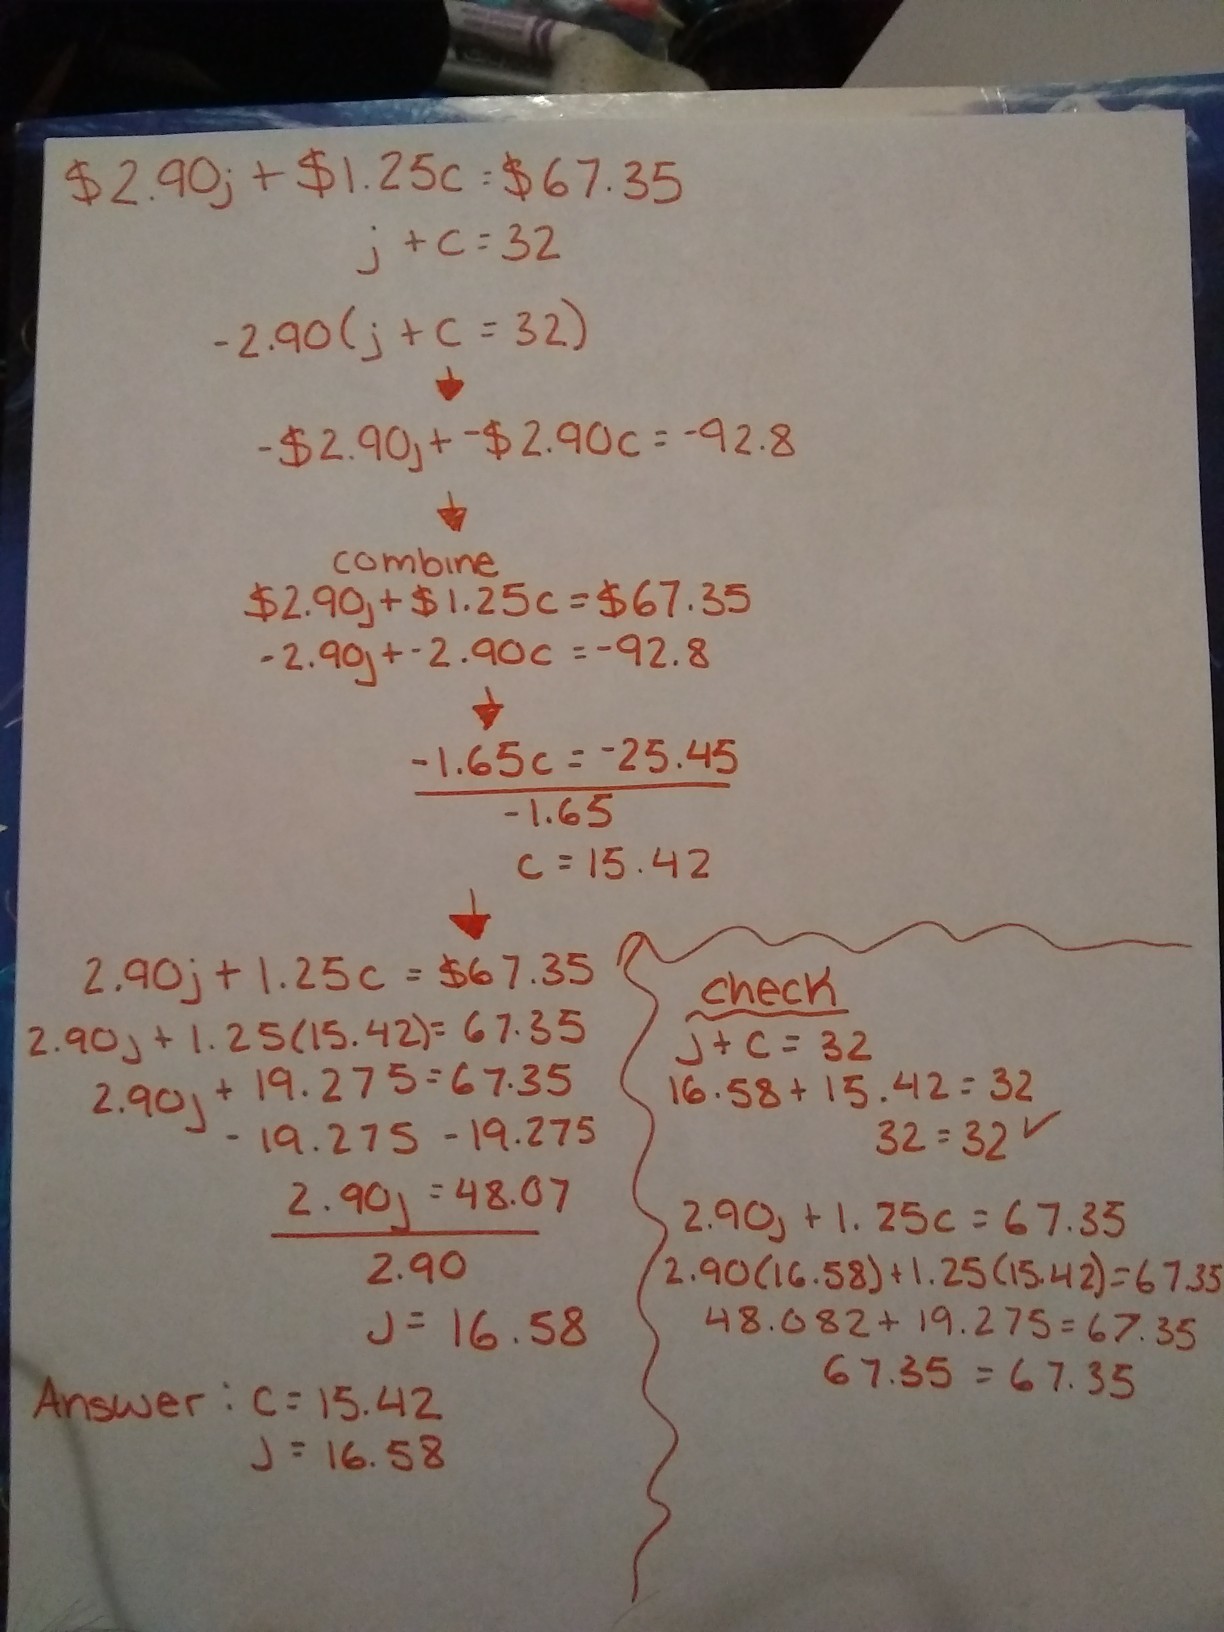 $2.90j + $1.25c = $67.35
j + c = 32
-2.90(j + c = 32)
-$2.90j + -$2.90c = -92.8
combine
$2.90j + $1.25c = $67.35
-2.90j + -2.90c = -92.8
-1.65c = -25.45
-1.65
c = 15.42
2.90j + 1.25c = $67.35
2.90j + 1.25(15.42) = 67.35
2.90j + 19.275 = 67.35
- 19.275 - 19.275
2.90j = 48.07
2.90
J = 16.58
Answer: C = 15.42
J = 16.58
check
j + c = 32
16.58 + 15.42 = 32
32 = 32 ✓
2.90j + 1.25c = 67.35
2.90(16.58) + 1.25(15.42) = 67.35
48.082 + 19.275 = 67.35
67.35 = 67.35